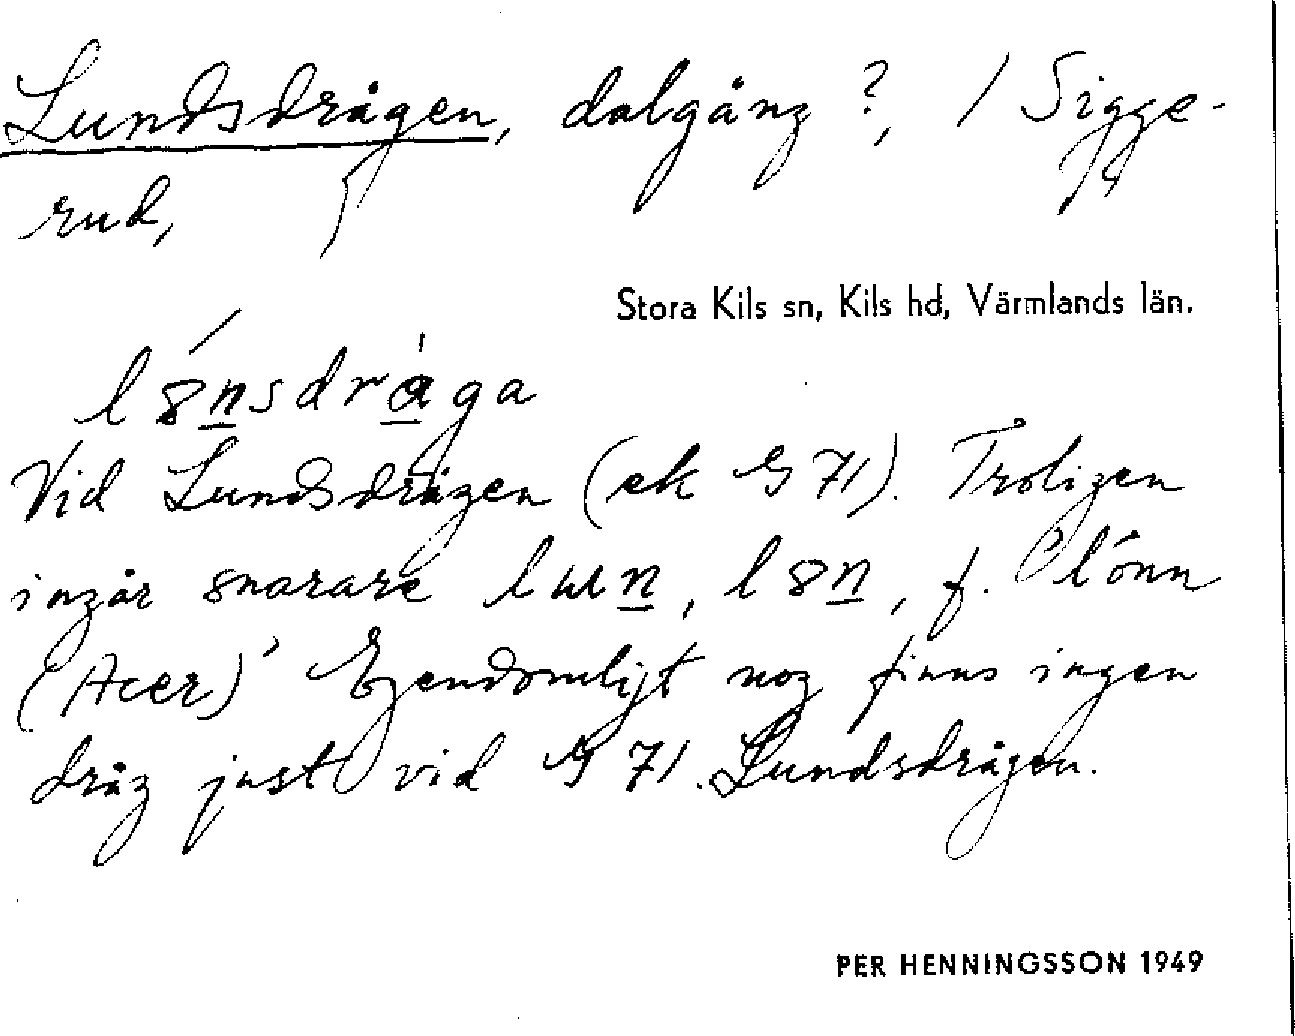 Lundsdrågen, dalgång ?, / Sigge-
rud,
Stora Kils sn, Kils hd, Värmlands län.
l8nsdråga
Vid Lundsdrågen (ek G 71). Troligen
ingår snarare lun, l8n, f. 'lönn
(Acer)' Egendomligt nog finns ingen
dråg just vid G 71. Lundsdrågen.
PER HENNINGSSON 1949